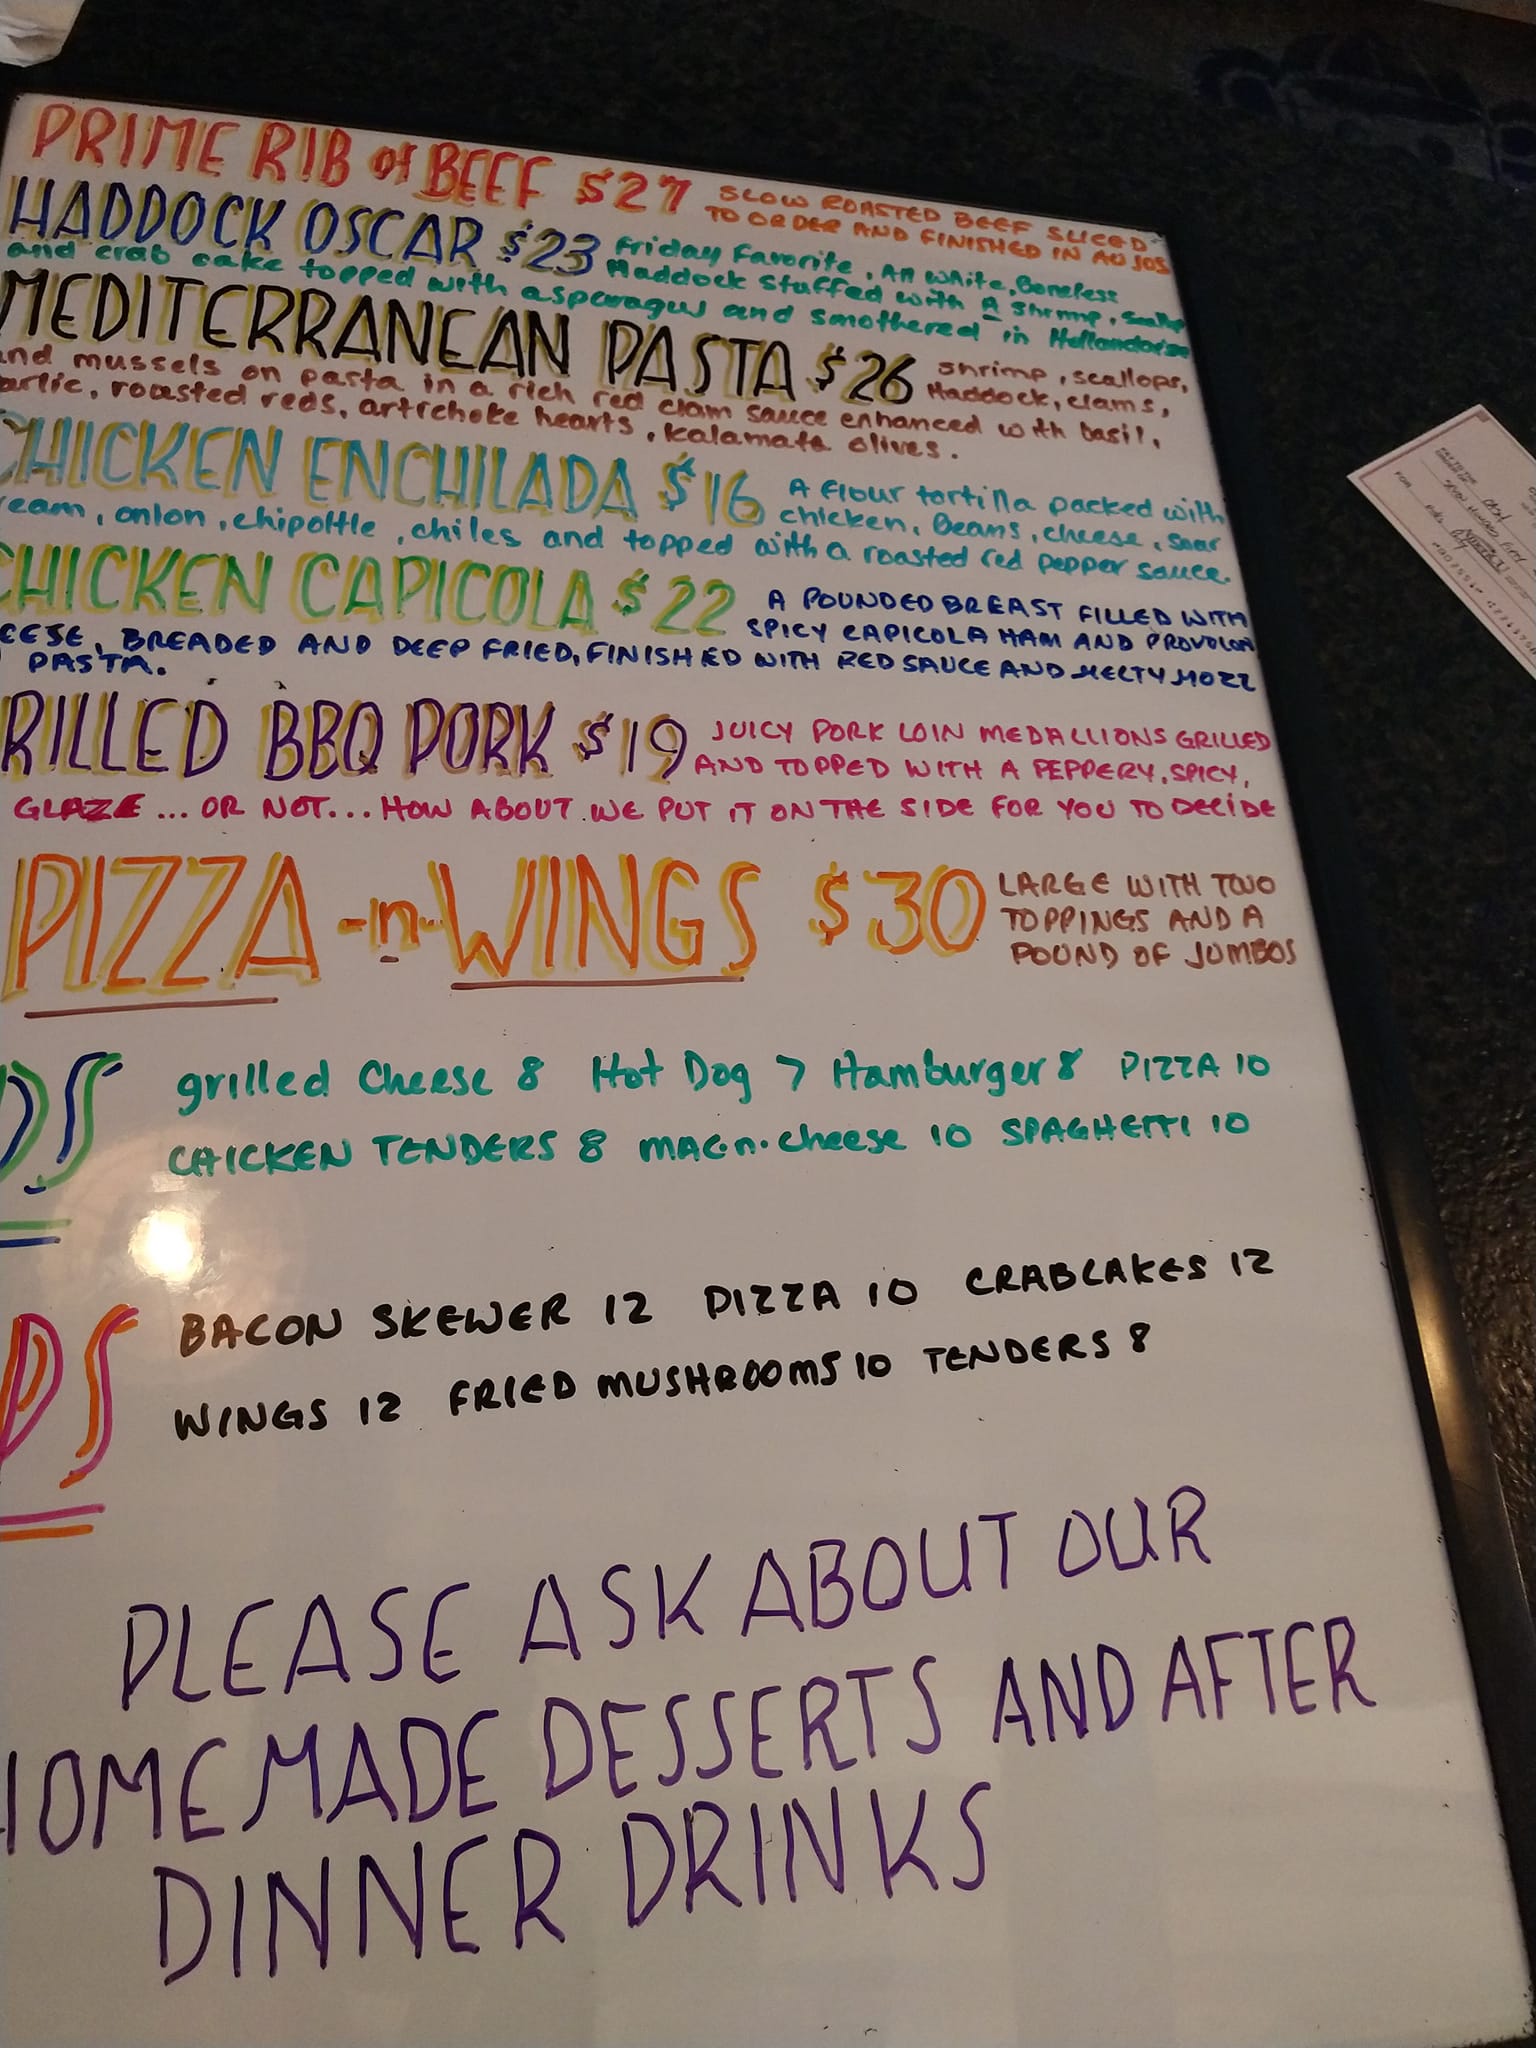 PRIME RIB of BEEF $27 SLOW ROASTED BEEF SLICED
TO ORDER AND FINISHED IN AU JUS
HADDOCK OSCAR $23 Friday Favorite, All White, Boneless
Haddock Stuffed with A Shrimp, Scallop
and crab cake topped with asparagus and smothered in Hollandaise
MEDITERRANEAN PASTA $26 Shrimp, scallops,
Haddock, clams,
and mussels on pasta in a rich red clam sauce enhanced with basil,
arlic, roasted reds, artichoke hearts, kalamata olives.
CHICKEN ENCHILADA $16 A Flour tortilla packed with
chicken, Beans, cheese, sour
ream, onion, chipoltle, chiles and topped with a roasted red pepper sauce.
CHICKEN CAPICOLA $22 A POUNDED BREAST FILLED WITH
SPICY CAPICOLA HAM AND PROVOLON
EESE, BREADED AND DEEP FRIED, FINISHED WITH RED SAUCE AND MELTY MOZZ
PASTA.
RILLED BBQ PORK $19 JUICY PORK LOIN MEDALLIONS GRILLED
AND TOPPED WITH A PEPPERY, SPICY,
GLAZE ... OR NOT... HOW ABOUT WE PUT IT ON THE SIDE FOR YOU TO DECIDE
PIZZA -n- WINGS $30 LARGE WITH TWO
TOPPINGS AND A
POUND OF JUMBOS
DS grilled Cheese 8 Hot Dog 7 Hamburger 8 PIZZA 10
CHICKEN TENDERS 8 mac.n.cheese 10 SPAGHETTI 10
PS BACON SKEWER 12 PIZZA 10 CRABCAKES 12
WINGS 12 FRIED MUSHROOMS 10 TENDERS 8
PLEASE ASK ABOUT OUR
HOMEMADE DESSERTS AND AFTER
DINNER DRINKS
PAY TO THE
ORDER OF
FOR